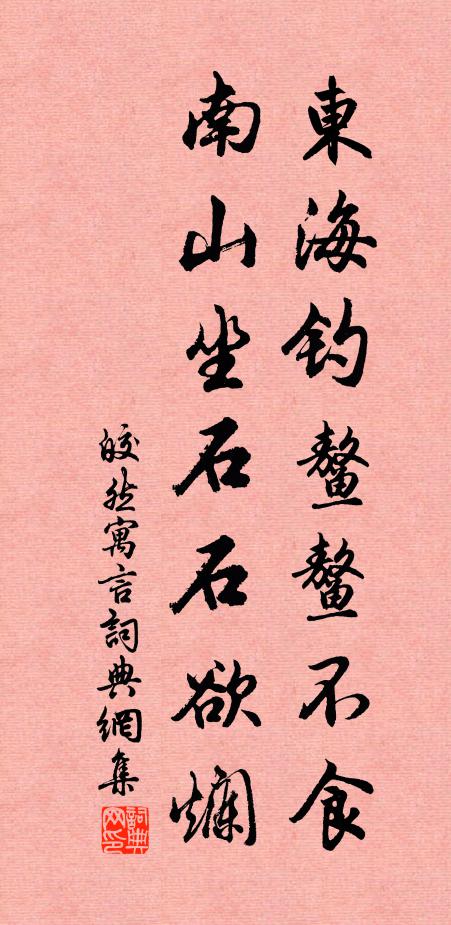 東海钓鼇鼇不食
南山坐石石欲爛
皎然寓言詞典網集
詞典网印